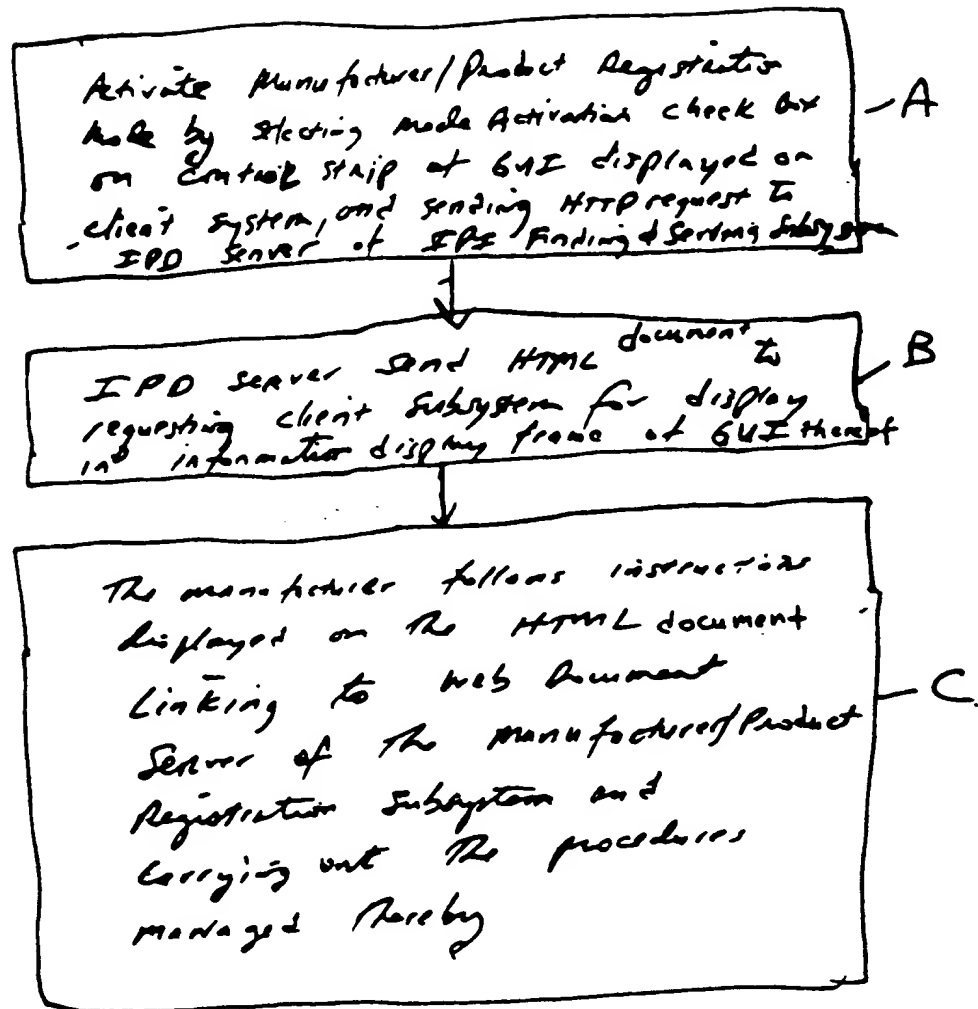 Activate Manufacturer/Product Registration
Mode by selecting mode Activation check box
on control strip of GUI displayed on
client system, and sending HTTP request to
IPD server of IPI Finding & Serving Subsystem
A
IPD server send HTML document to
requesting client subsystem for display
in information display frame of GUI thereof
B
The manufacturer follows instructions
displayed on the HTML document
Linking to Web Document
Server of the Manufacturer/Product
Registration Subsystem and
Carrying out the procedures
managed thereby
C.